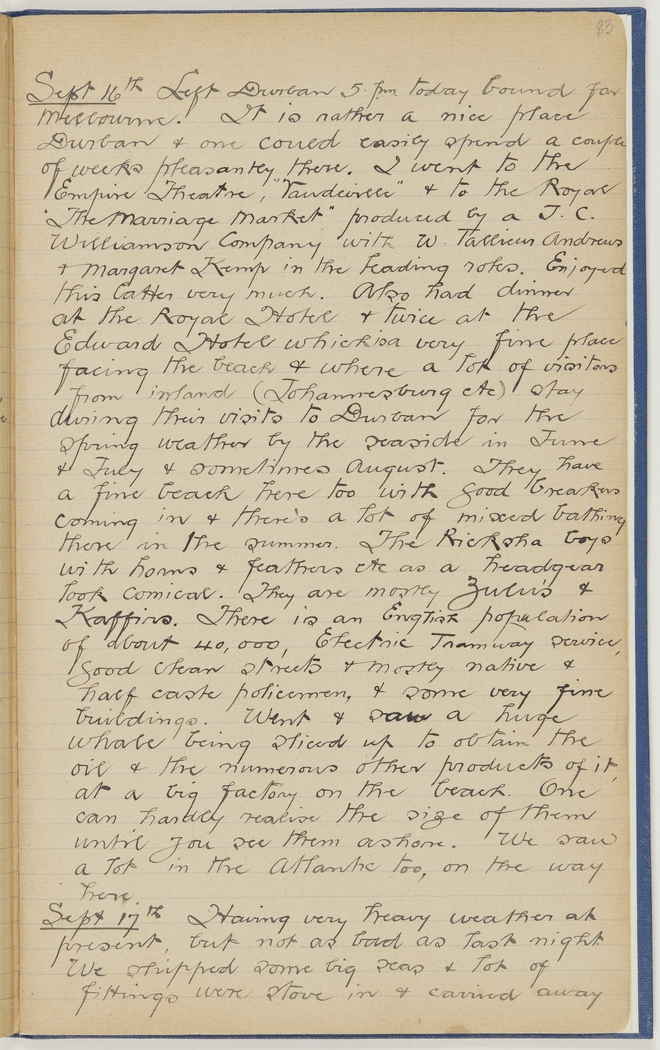 83
Sept 16th Left Durban 5. pm today bound for
Melbourne. It is rather a nice place
Durban & one could easily spend a couple
of weeks pleasantly there. I went to the
Empire Theatre, "Vaudeville" & to the Royal
"The Marriage Market" produced by a J. C.
Williamson Company with W. Talleur Andrews
& Margaret Kemp in the leading roles. Enjoyed
this latter very much. Also had dinner
at the Royal Hotel & twice at the
Edward Hotel which is a very fine place
facing the beach & where a lot of visitors
from inland (Johannesburg etc) stay
during their visits to Durban for the
spring weather by the seaside in June
& July & sometimes August. They have
a fine beach here too with good breakers
coming in & there's a lot of mixed bathing
there in the summer. The Ricksha boys
with horns & feathers etc as a headgear
look comical. They are mostly Zulu's &
Kaffirs. There is an English population
of about 40,000, Electric Tramway service,
good clean streets & mostly native &
half caste policemen, & some very fine
buildings. Went & saw a huge
whale being sliced up to obtain the
oil & the numerous other products of it,
at a big factory on the beach. One
can hardly realise the size of them
until you see them ashore. We saw
a lot in the Atlantic too, on the way
here.
Sept 17th Having very heavy weather at
present, but not as bad as last night
We shipped some big seas & lot of
fittings were stove in & carried away